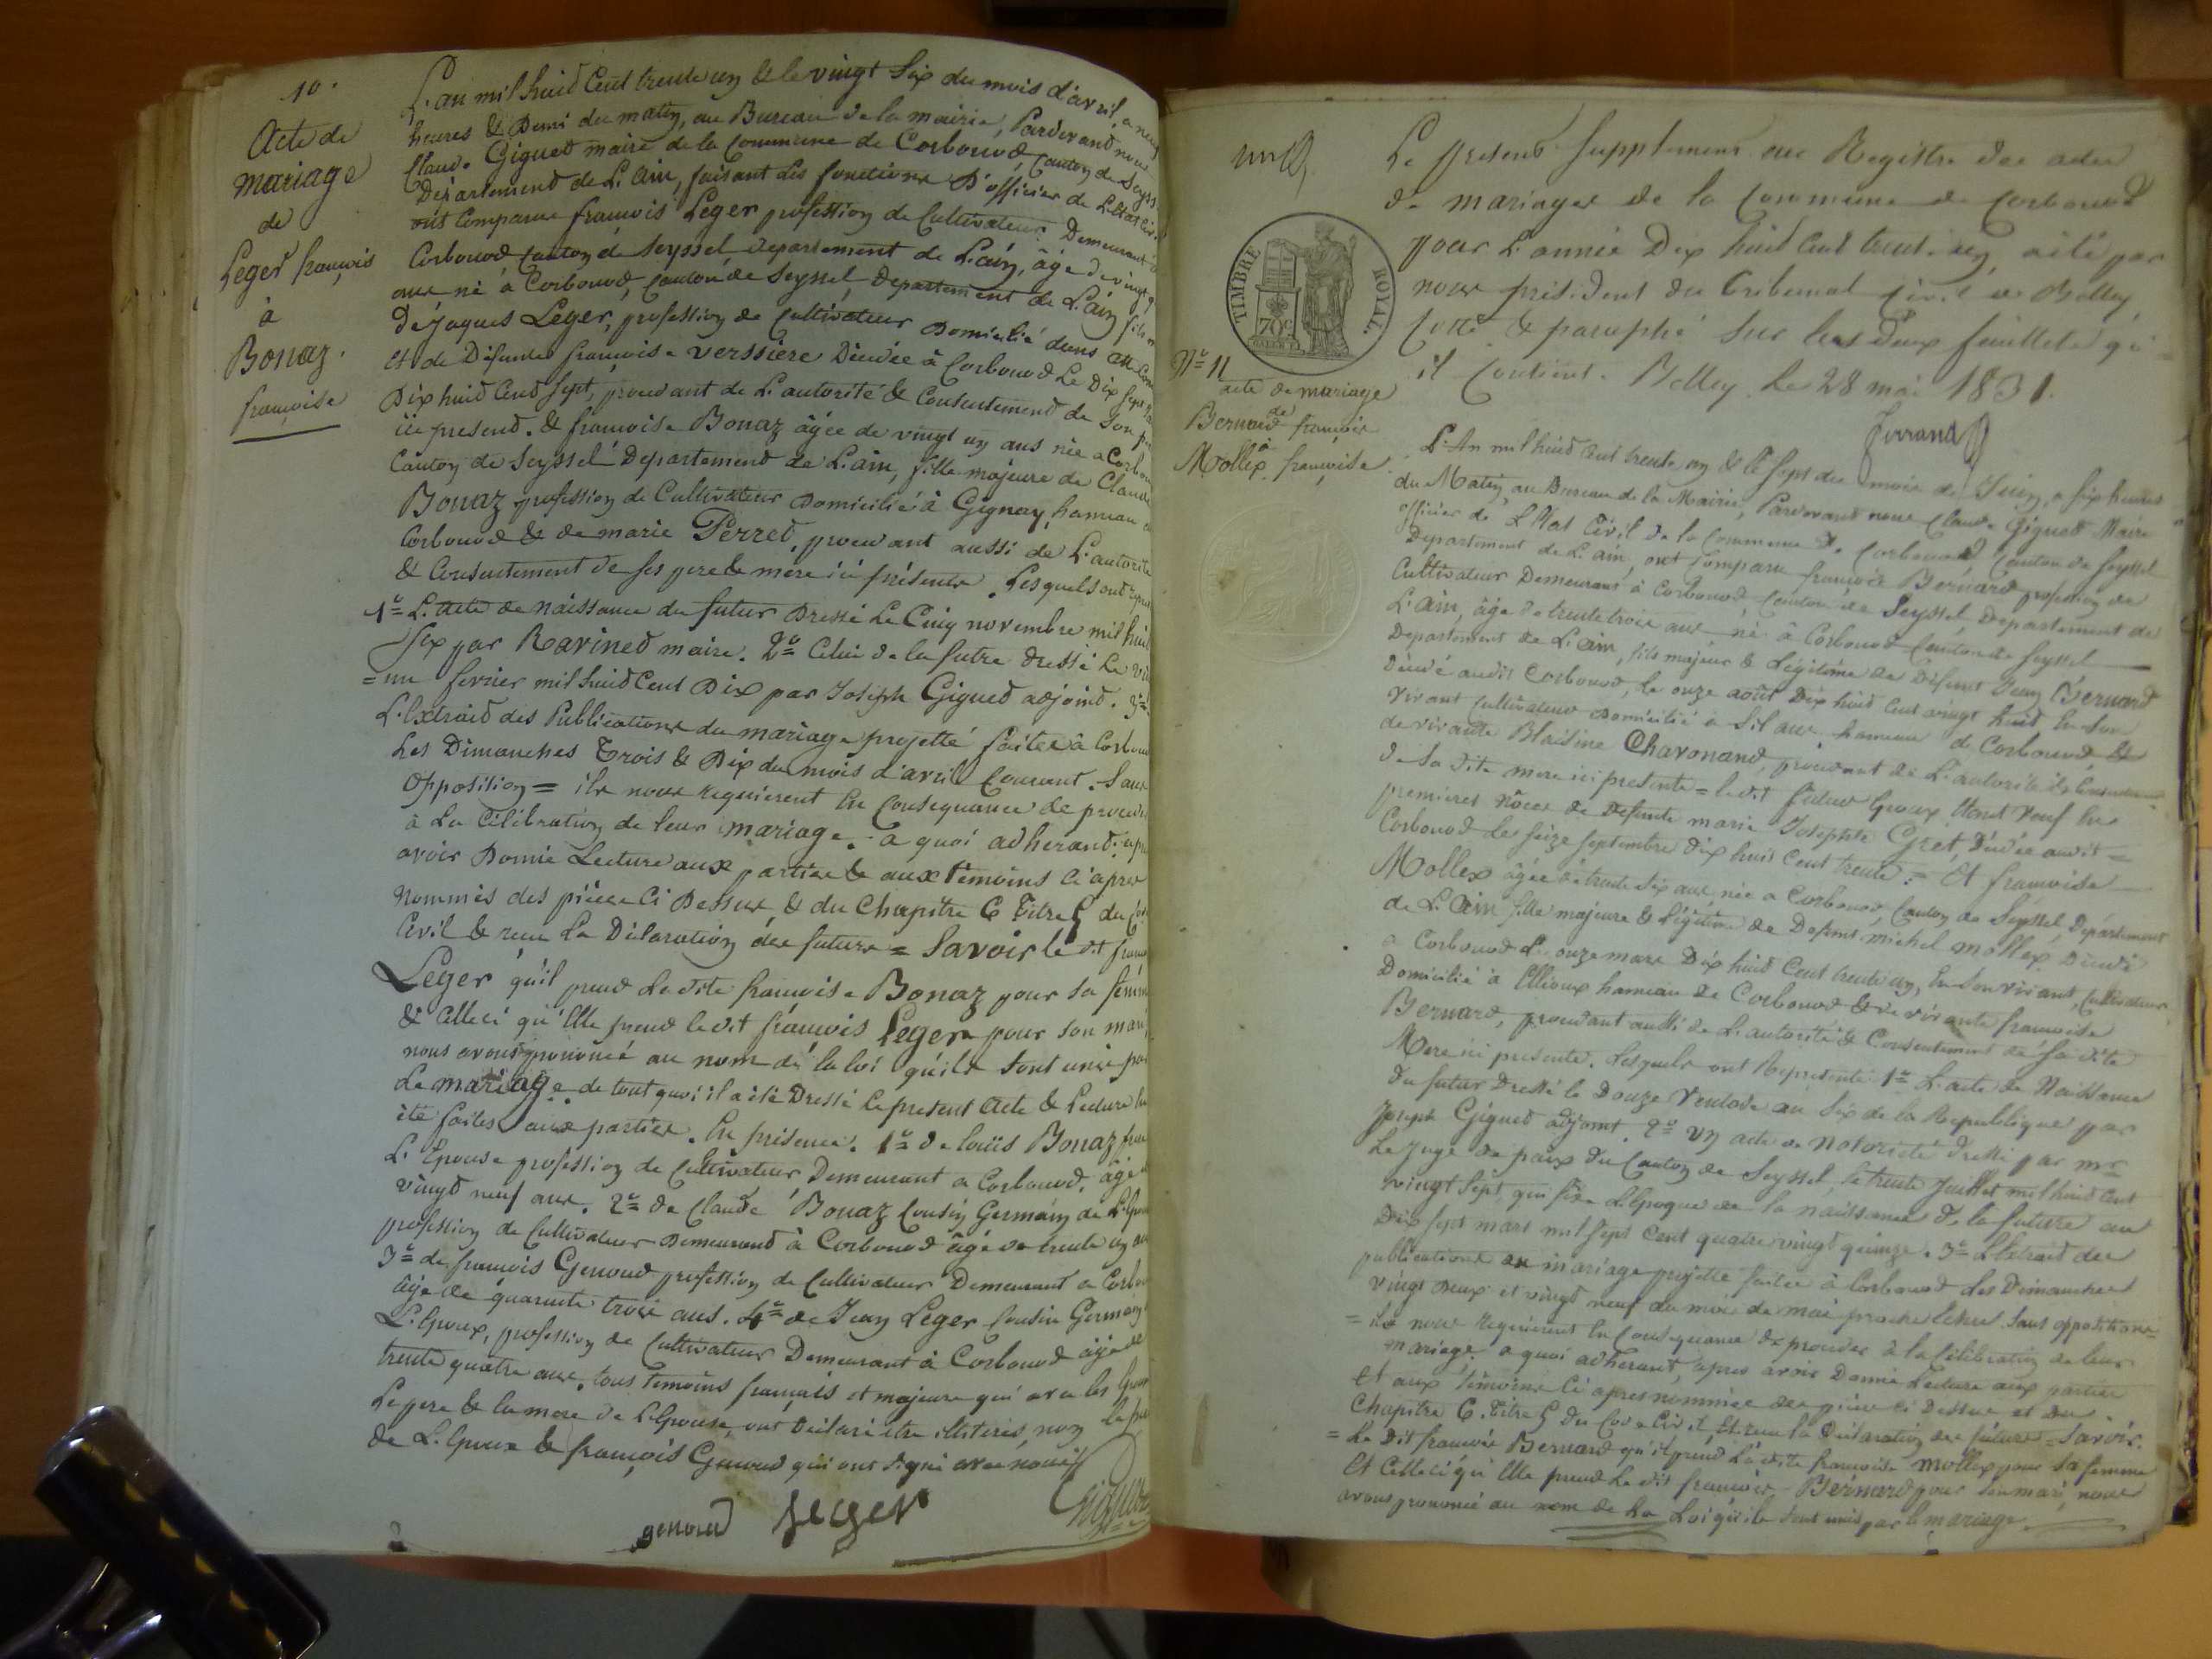 10.
Acte de
mariage
de
Leger françois
à
Bonaz
françoise
L'an mil huit Cent trente un & le vingt Six du mois d'avril, a neuf
heures & Demi du matin, au Bureau de la mairie, Pardevant nous
Claude Gigued maire de la Commune de Corbonod, Canton de Seyss
Département de L'ain, faisant les fonctions D'officier de L'Etat Civ
ont Comparue françois Leger profession de Cultivateur Demeurant à
Corbonod Canton de Seyssel, Departement de L'ain, âgé de vingt q
ans né à Corbonod, Canton de Seyssel, Departement de L'ain fils
De Jaques Leger, profession de Cultivateur Domicilié dans
et de Défunte françoise verssière Décédée à Corbonod Le Dix Sept
Dix huid Cend Sept, procedant de L'autorité & Consentement de Son p
ici present. & françoise Bonaz âgée de vingt un ans née a Corbon
Canton de Seyssel Departement de L'ain, fille majeure de Claude
Bonaz profession de Cultivateur Domicilié à Gignay, hameau
Corbonod & de marie Perred, procedant aussi de L'autorité
& Consentement de ses pere & mere ici présents. Lesquels ont
1º L'acte de naissance du futur Dressé Le Cinq novembre mil huit
Six par Ravined maire. 2º Celui de la futre dressé Le vin
= un fevrier mil huid Cent Dix par Joseph Gigued adjoind. 3º
L'Extraid des Publications du mariage projetté faites à Corbon
Les Dimanches Trois & Dix du mois d'avril Courant. Sans
Opposition = ils nous requierent En Consequance de procede
à La Célébration de leur mariage. a quoi adherand: apr
avoir Donné Lecture aux parties & aux témoins ci après
Nommés des pièces Ci Dessus, & du Chapitre 6 Titre 5 du
Civil & reçu La Déclaration des futurs = Savoir le dit franc
Leger qu'il prend La dite françoise Bonaz pour Sa femm
& Celle ci qu'Elle prend le dit françois Leger pour Son mari
nous avons prononcé au nom de la loi qu'ils Sont unis par
Le mariage. de tout quoi il a été Dressé Le present acte & Lecture
été faites aux parties. En présence. 1º de louis Bonaz
L'Epouse profession de Cultivateur, Demeurant a Corbonod, âgé
vingt neuf ans. 2º de Claude Bonaz Cousin Germain de L'Epou
profession de Cultivateur Demeurand à Corbonod âgé de trente un
3º de françois Genoud profession de Cultivateur Demeurant a Corbo
âgé de quarante trois ans. 4º de Jean Leger Cousin Germain
L'Epoux, profession de Cultivateur Demeurant à Corbonod âgé de
trente quatre ans, tous temoins français et majeurs qui avec les Epou
Le pere & la mere de L'Epouse, ont Déclaré être illiterés, non
de L'Epoux & françois Genoud qui ont Signé avec nous
genoud Leger
Le present Supplement au Registre des actes
de mariages de la Commune de Corbonod
pour L'année Dix huid Cent trente un, a été par
nous président du Tribunal Civil de Belley,
Cotté & paraphé Sur les Deux feuillets qu'
il Contient. Belley Le 28 mai 1831.
Ferrand
TIMBRE ROYAL.
70c
Nº 11
acte de mariage
de
Bernard françois
à
Mollex françoise
L'An mil huid Cent trente un & le Sept du mois de Juin, a Six heures
du Matin, au Bureau de la Mairie, Pardevand nous Claude Gigued Maire
officier de L'Etat Civil de la Commune de Corbonod Canton de Seyssel
Departement de L'ain, ont Comparu françois Bernard profession de
Cultivateur Demeurant à Corbonod, Canton de Seyssel, Departement de
L'ain, âgé de trente trois ans né à Corbonod Canton de Seyssel
Departement de L'ain, fils majeur & Légitime de Défunt Jean Bernard
Décédé audit Corbonod, le onze août Dix huid Cent vingt huid En Son
vivant Cultivateur Domicilié à Silans hameau de Corbonod, &
de vivante Blaisine Charonand, procedant de L'autorité & Consentement
de Sa dite mere ici presente = le dit futur Epoux Etant veuf En
premieres nôces de Defunte marie Josephte Gret, Décédée audit =
Corbonod Le Seize Septembre Dix huit Cent trente. = Et françoise
Mollex âgée de trente Six ans née a Corbonod, Canton de Seyssel, Département
de L'Ain fille majeure & Légitime de Defunt michel mollex Décédé
a Corbonod Le onze mars Dix huid Cent trente un, En Son vivant, Cultivateur
Domicilié à Ellioux hameau de Corbonod & de vivante françoise
Bernard, procedant aussi de L'autorité & Consentement de Sa dite
Mere ici presente. Lesquels ont Representé 1º L'acte de Naissance
du futur Dressé le Douze Ventose an Six de la Republique par
Joseph Gigued adjoint. 2º un acte de Notorieté dressé par mr
Le Juge de paix du Canton de Seyssel, le trente Juillet mil huid Cent
vingt Sept, qui fixe L'Epoque de la naissance de la future au
Dix Sept mars mil Sept Cent quatre vingt quinze. 3º L'Extrait des
publications du mariage projetté faites à Corbonod Les Dimanches
vingt Deux et vingt neuf du mois de mai proche Echu Sans opposition =
= ils nous requierent En Consequance de proceder à la Célébration de leur
mariage. a quoi adherant, apres avoir Donné Lecture aux parties
Et aux témoins Ci apres nommés des pieces Ci Dessus et Du
Chapitre 6. Titre 5 du Code Civil, Et reçu la Déclaration des futurs = Savoir.
= Le Dit françois Bernard qu'il prend La dite françoise mollex pour Sa femme
Et Celle ci qu'Elle prend Le dit françois Bernard pour Son mari, nous
avons prononcé au nom de La Loi qu'ils Sont unis par le mariage.